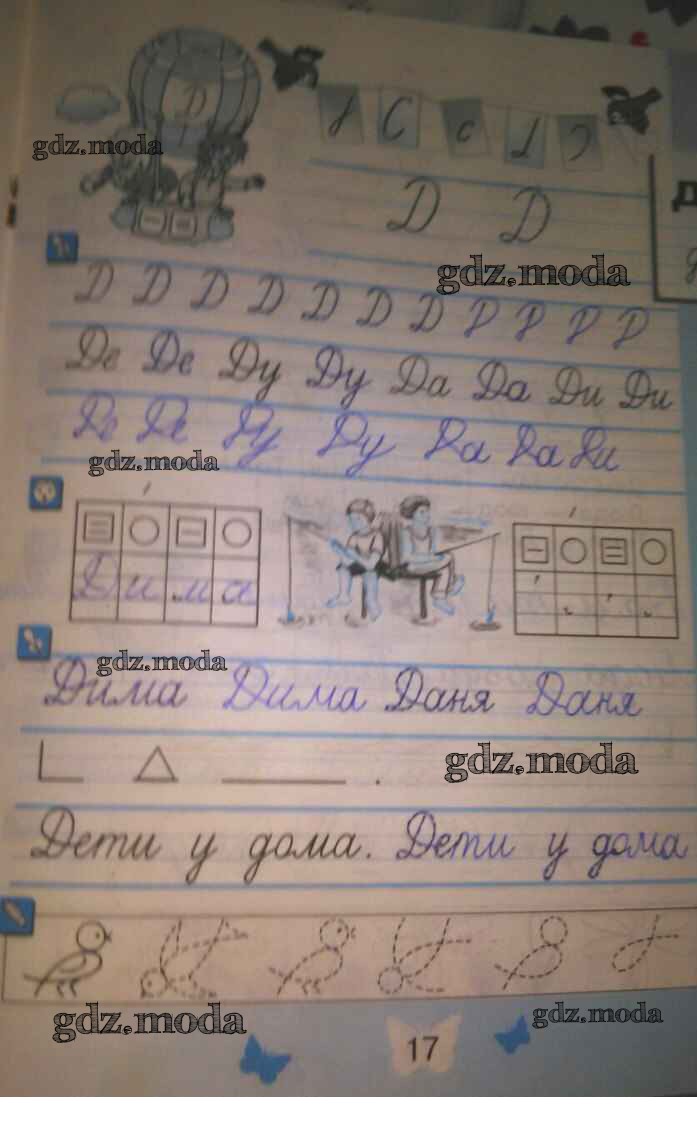 Д
gdz.moda
C c
Д Д
gdz.moda
Д Д Д Д Д Д Д Д Д Д Д
Де Де Ду Ду Да Да Ди Ди
Де Де Ду Ду Да Да Ди
gdz.moda
Дима
gdz.moda
Дима Дима Даня Даня
gdz.moda
Дети у дома. Дети у дома
gdz.moda
gdz.moda
17